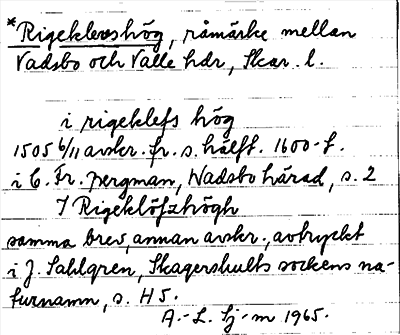 *Rigeklevshög, råmärke mellan
Vadsbo och Valle hdr, Skar. l.
i rigeklefs hög
1505 6/11 avskr. fr. s. hälft. 1600-t.
i C. Fr. Bergman, Wadsbo härad, s. 2
I Rigeklöfzhögh
samma brev, annan avskr., avtryckt
i J. Sahlgren, Skagershults sockens na-
turnamn, s. 45.
A.-L. Sj-m 1965.